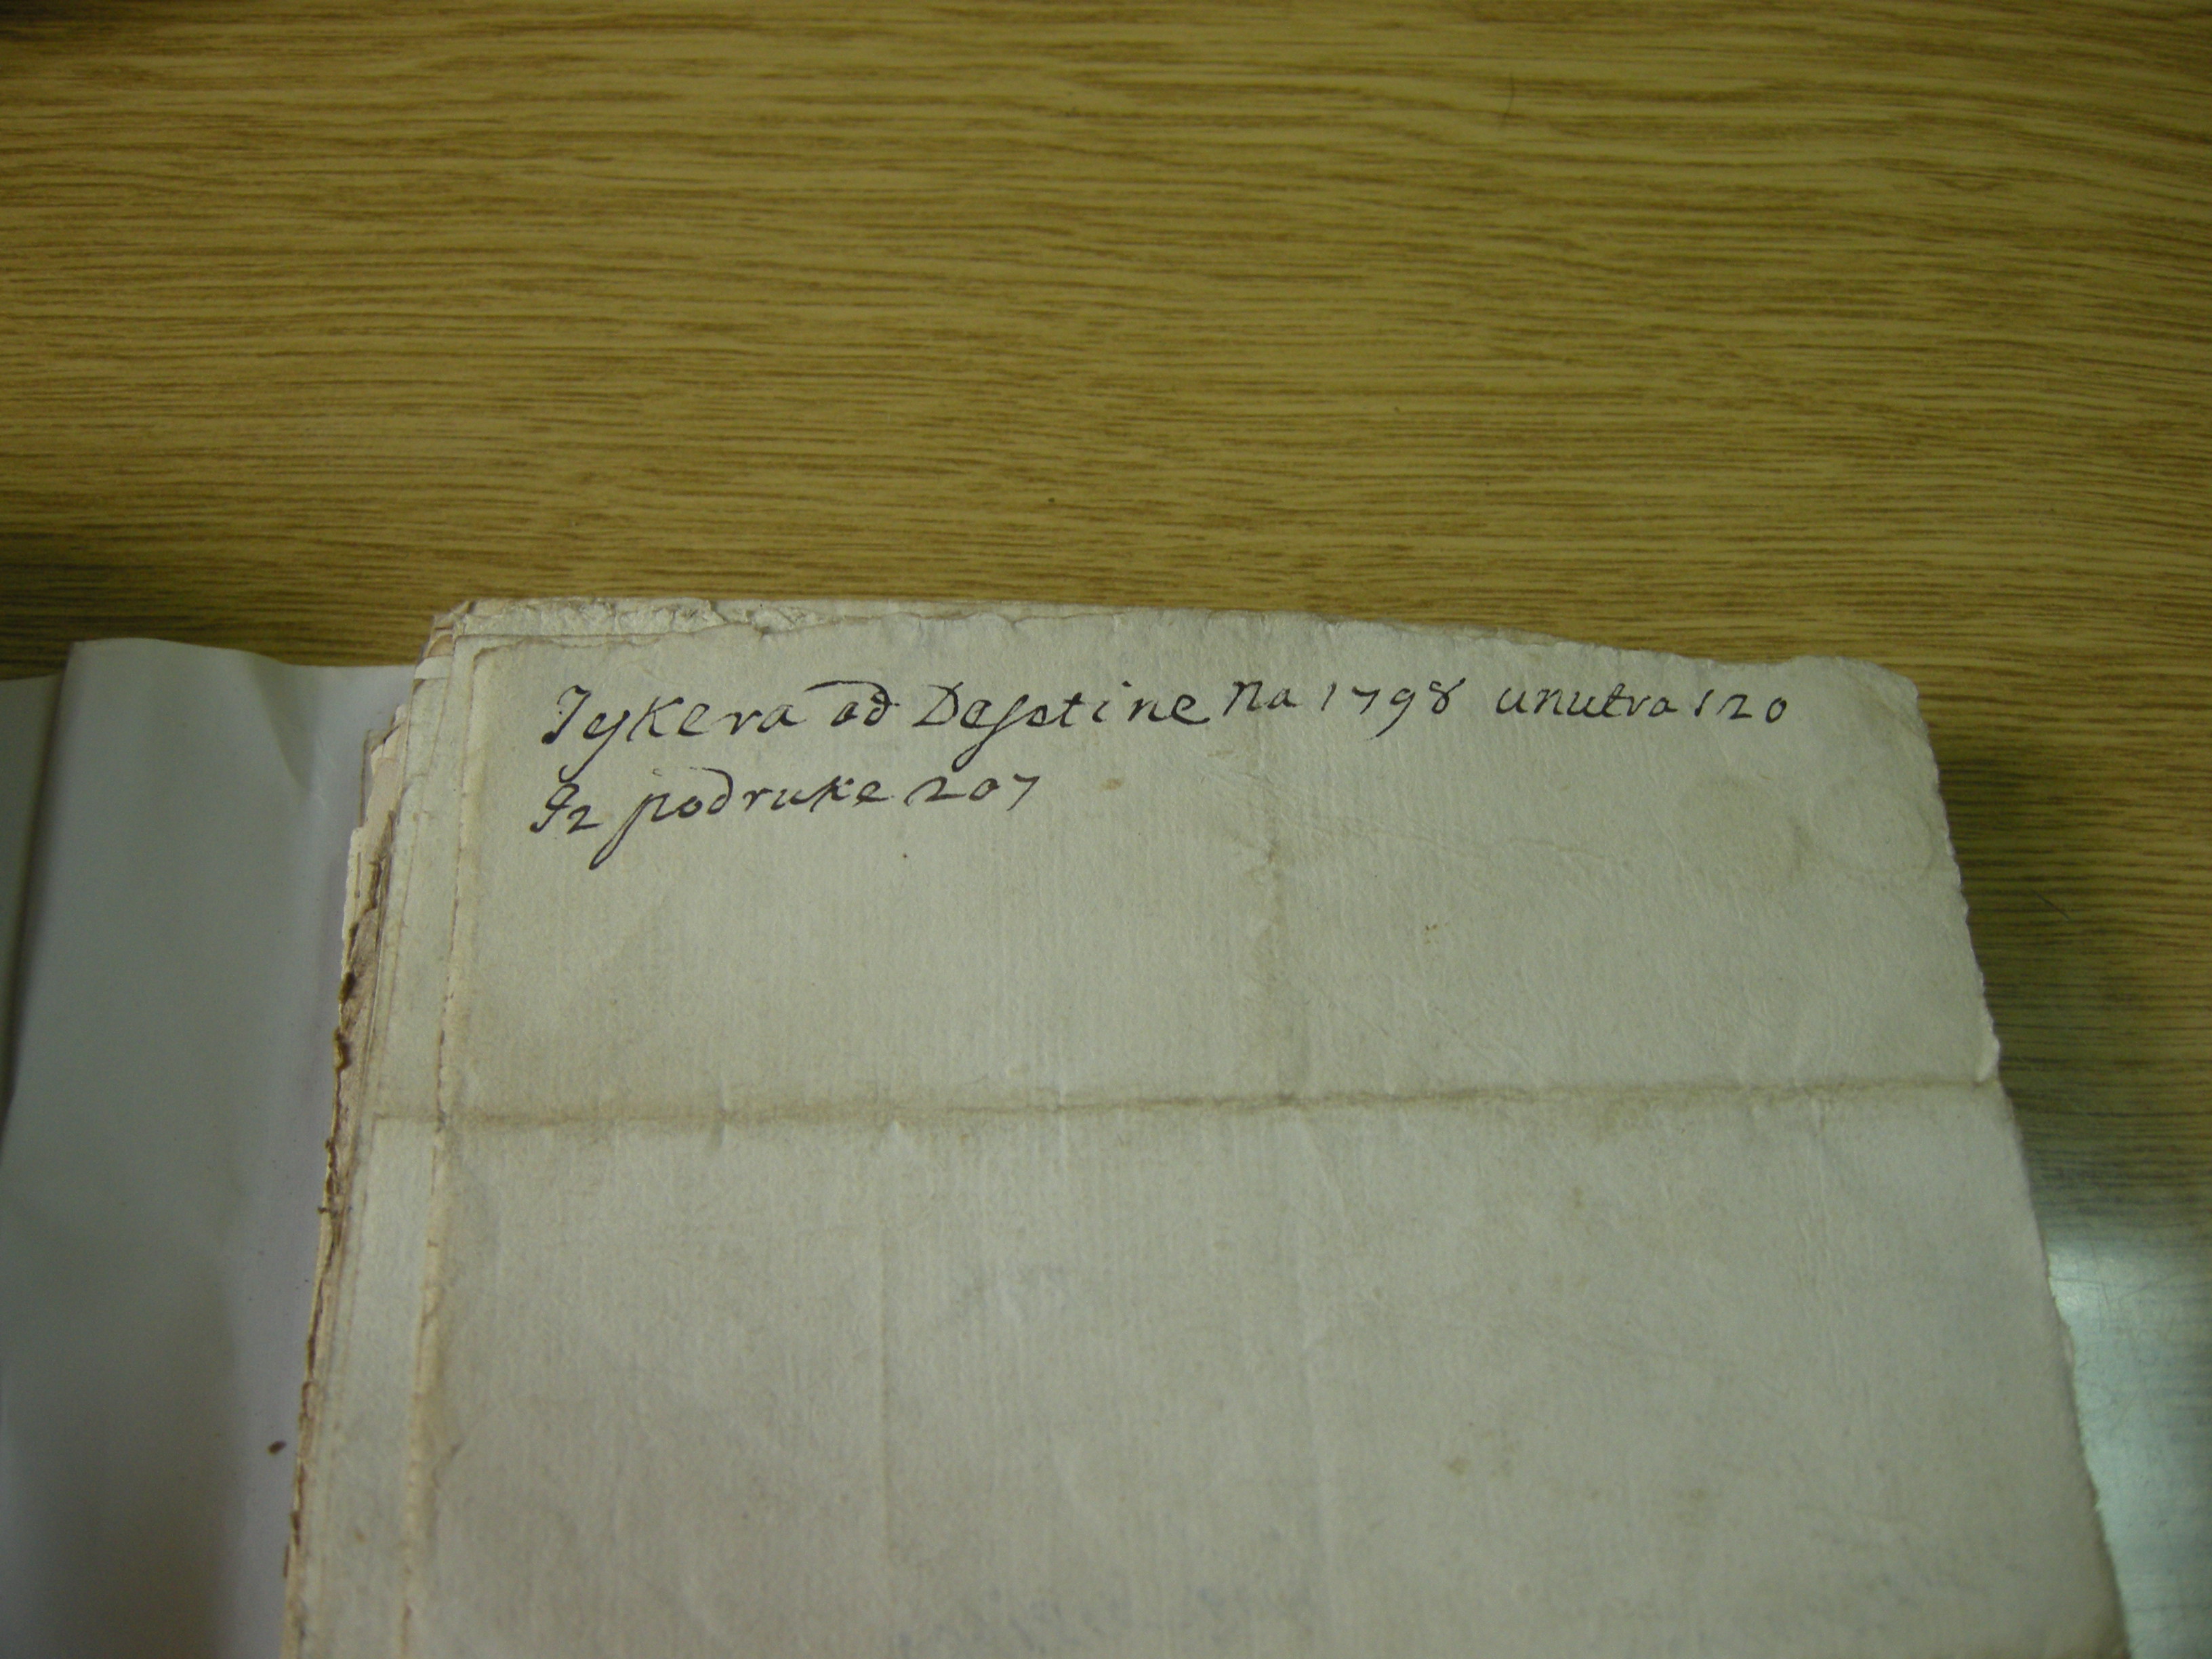 Tejkera od Desetine na 1798 unutra 120
Iz podruke 207